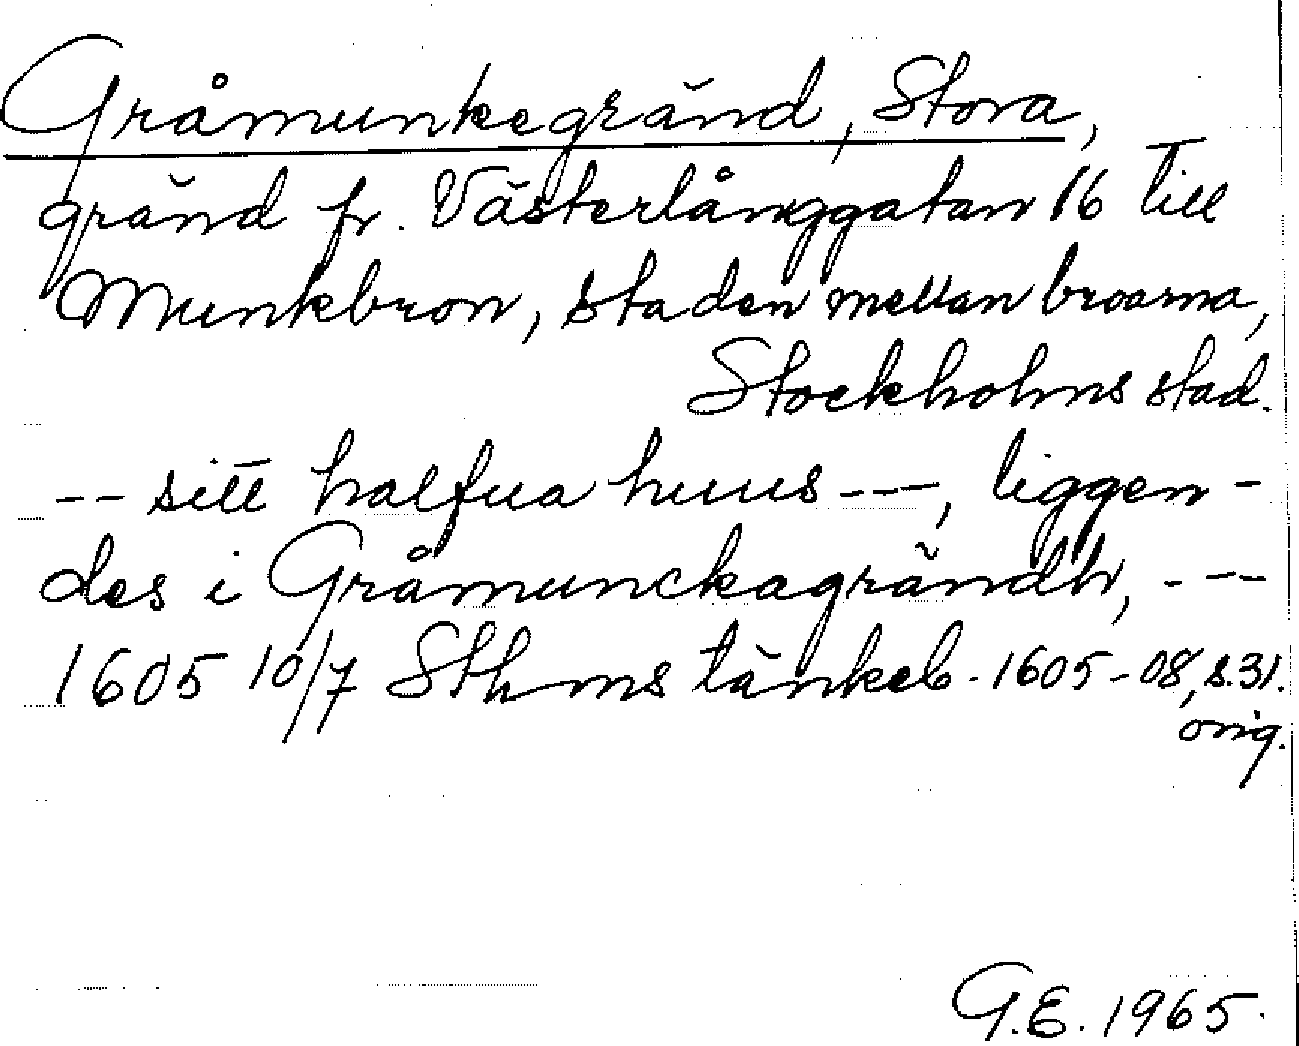 Gråmunkegränd, Stora,
gränd fr. Västerlånggatan 16 till
Munkbron, staden mellan broarna,
Stockholms stad.
-- sitt halfua huus ---, liggen-
des i Gråmunckagrändh, ---
1605 10/7 Sthms tänkeb. 1605-08, s. 31.
orig.
G.E. 1965.